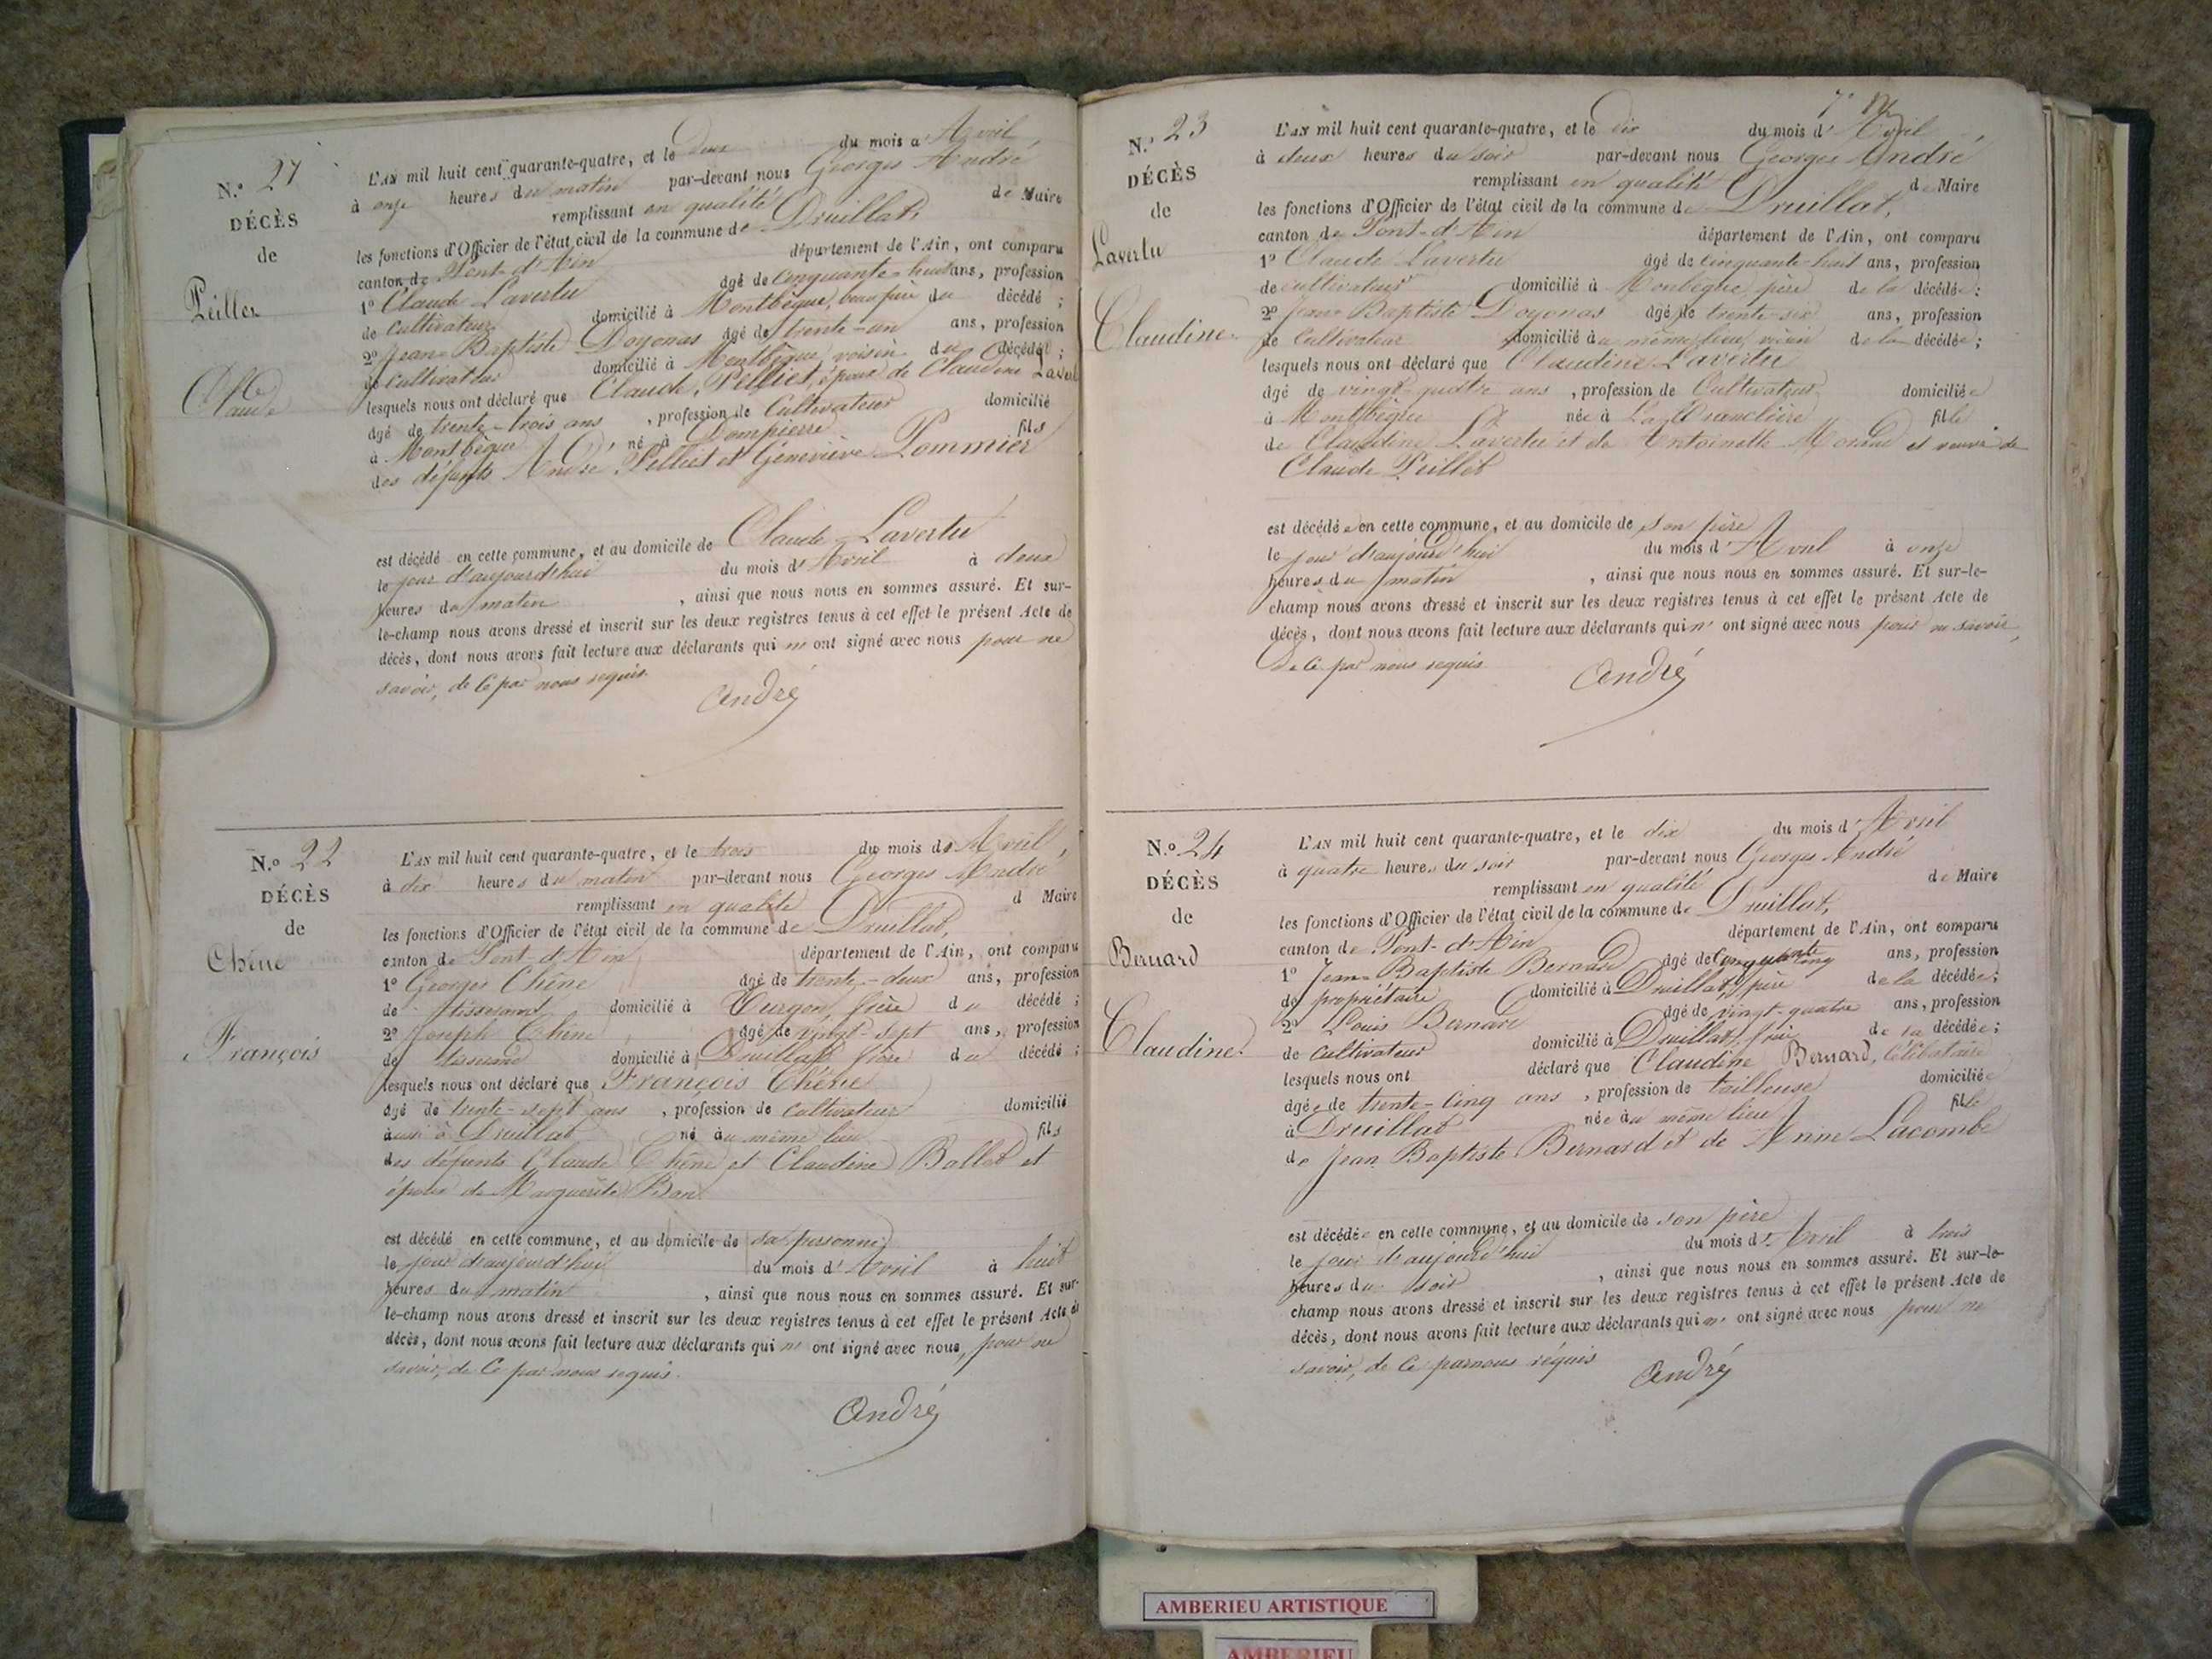 N.º 21
DÉCÈS
de
Peillex
Claude
L'AN mil huit cent quarante-quatre, et le deux du mois d'Avril
à onze heures du matin par-devant nous Georges André
remplissant en qualité de Maire
les fonctions d'Officier de l'état civil de la commune de Druillat,
canton de Pont-d'Ain département de l'Ain, ont comparu
1º Claude Lavertu âgé de cinquante-huit ans, profession
de cultivateur domicilié à Montbègue, beau père du décédé ;
2º Jean-Baptiste Doyonas âgé de trente-un ans, profession
de cultivateur domicilié à Montbègue, voisin du décédé ;
lesquels nous ont déclaré que Claude Pelliet, époux de Claudine
âgé de trente-trois ans , profession de Cultivateur domicilié
à Montbègue né à Dompierre fils
des défunts André Pelliet et Géneviève Pommier
est décédé en cette commune, et au domicile de Claude Lavertu
le jour d'aujourd'hui du mois d'Avril à deux
heures du matin , ainsi que nous nous en sommes assuré. Et sur-
le-champ nous avons dressé et inscrit sur les deux registres tenus à cet effet le présent Acte de
décès, dont nous avons fait lecture aux déclarants qui n'ont signé avec nous pour ne
savoir, de ce par nous requis.
André
N.º 22
DÉCÈS
de
Chêne
François
L'AN mil huit cent quarante-quatre, et le trois du mois d'Avril,
à dix heures du matin par-devant nous Georges André
remplissant en qualité d Maire
les fonctions d'Officier de l'état civil de la commune de Druillat,
canton de Pont-d'Ain département de l'Ain, ont comparu
1º Georges Chêne âgé de trente-deux ans, profession
de tisserand domicilié à Turgon, frère du décédé ;
2º Joseph Chêne âgé de vingt-sept ans, profession
de tisserand domicilié à Druillat, frère du décédé ;
lesquels nous ont déclaré que François Chêne
âgé de trente-sept ans , profession de cultivateur domicilié
aussi à Druillat né au même lieu fils
des défunts Claude Chêne et Claudine Ballet et
époux de Marguerite Bon
est décédé en cette commune, et au domicile de sa personne
le jour d'aujourd'hui du mois d'Avril à huit
heures du matin , ainsi que nous nous en sommes assuré. Et sur-
le-champ nous avons dressé et inscrit sur les deux registres tenus à cet effet le présent Acte de
décès, dont nous avons fait lecture aux déclarants qui n'ont signé avec nous, pour ne
savoir, de ce par nous requis.
André
N.º 23
DÉCÈS
de
Lavertu
Claudine.
L'AN mil huit cent quarante-quatre, et le dix du mois d'Avril
à deux heures du soir par-devant nous Georges André
remplissant en qualité de Maire
les fonctions d'Officier de l'état civil de la commune de Druillat,
canton de Pont-d'Ain département de l'Ain, ont comparu
1º Claude Lavertu âgé de cinquante-huit ans, profession
de cultivateur domicilié à Monbègue, père de la décédée ;
2º Jean-Baptiste Doyonas âgé de trente-six ans, profession
de Cultivateur domicilié au même lieu, voisin de la décédée ;
lesquels nous ont déclaré que Claudine Lavertu
âgé de vingt-quatre ans , profession de Cultivateur domiciliée
à Montbègue née à La Tranclière fille
de Claudine Lavertu et de Antoinette Morand et veuve de
Claude Peillet
est décédée en cette commune, et au domicile de son père
le jour d'aujourd'hui du mois d'Avril à onze
heures du matin , ainsi que nous nous en sommes assuré. Et sur-le-
champ nous avons dressé et inscrit sur les deux registres tenus à cet effet le présent Acte de
décès, dont nous avons fait lecture aux déclarants qui n'ont signé avec nous pour ne savoir,
de ce par nous requis
André
N.º 24
DÉCÈS
de
Bernard
Claudine.
L'AN mil huit cent quarante-quatre, et le dix du mois d'Avril
à quatre heures du soir par-devant nous Georges André
remplissant en qualité de Maire
les fonctions d'Officier de l'état civil de la commune de Druillat,
canton de Pont-d'Ain département de l'Ain, ont comparu
1º Jean-Baptiste Bernard âgé de cinquante cinq ans, profession
de propriétaire domicilié à Druillat, père de la décédée ;
2º Louis Bernard âgé de vingt-quatre ans, profession
de cultivateur domicilié à Druillat, frère de la décédée ;
lesquels nous ont déclaré que Claudine Bernard, célibataire
âgée de trente-cinq ans , profession de tailleuse domiciliée
à Druillat née au même lieu fille
de Jean Baptiste Bernard et de Anne Lacombe
est décédée en cette commune, et au domicile de son père
le jour d'aujourd'hui du mois d'Avril à trois
heures du soir , ainsi que nous nous en sommes assuré. Et sur-le-
champ nous avons dressé et inscrit sur les deux registres tenus à cet effet le présent Acte de
décès, dont nous avons fait lecture aux déclarants qui n'ont signé avec nous pour ne
savoir, de ce par nous requis
André
AMBERIEU ARTISTIQUE
AMBERIEU